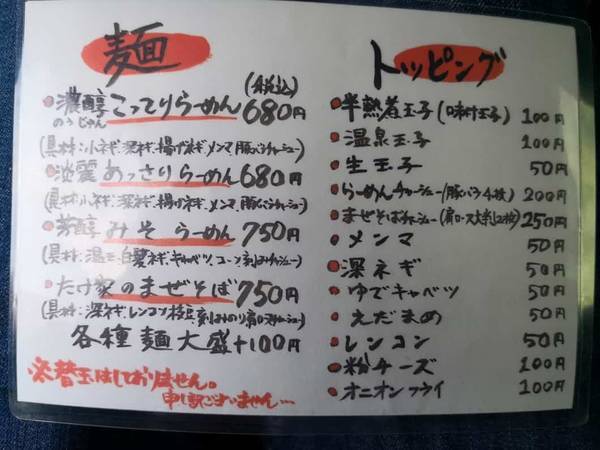 麺
(税込)
濃醇こってりらーめん 680円
のうじゅん
(具材:小ネギ、深ネギ、揚げネギ、メンマ、豚バラチャーシュー)
淡麗あっさりらーめん 680円
(具材:小ネギ、深ネギ、揚げネギ、メンマ、豚バラチャーシュー)
芳醇みそらーめん 750円
(具材:温玉、白髪ネギ、キャベツ、コーン、刻みチャーシュー)
たけ家のまぜそば 750円
(具材:深ネギ、レンコン、枝豆、刻みのり、肩ロースチャーシュー)
各種麺大盛+100円
※替玉はしておりません。
申し訳ございません…
トッピング
半熟煮玉子(味付玉子) 100円
温泉玉子 100円
生玉子 50円
らーめんチャーシュー(豚バラ4枚) 200円
まぜそばチャーシュー(肩ロース大判2枚) 250円
メンマ 50円
深ネギ 50円
ゆでキャベツ 50円
えだまめ 50円
レンコン 50円
粉チーズ 100円
オニオンフライ 100円